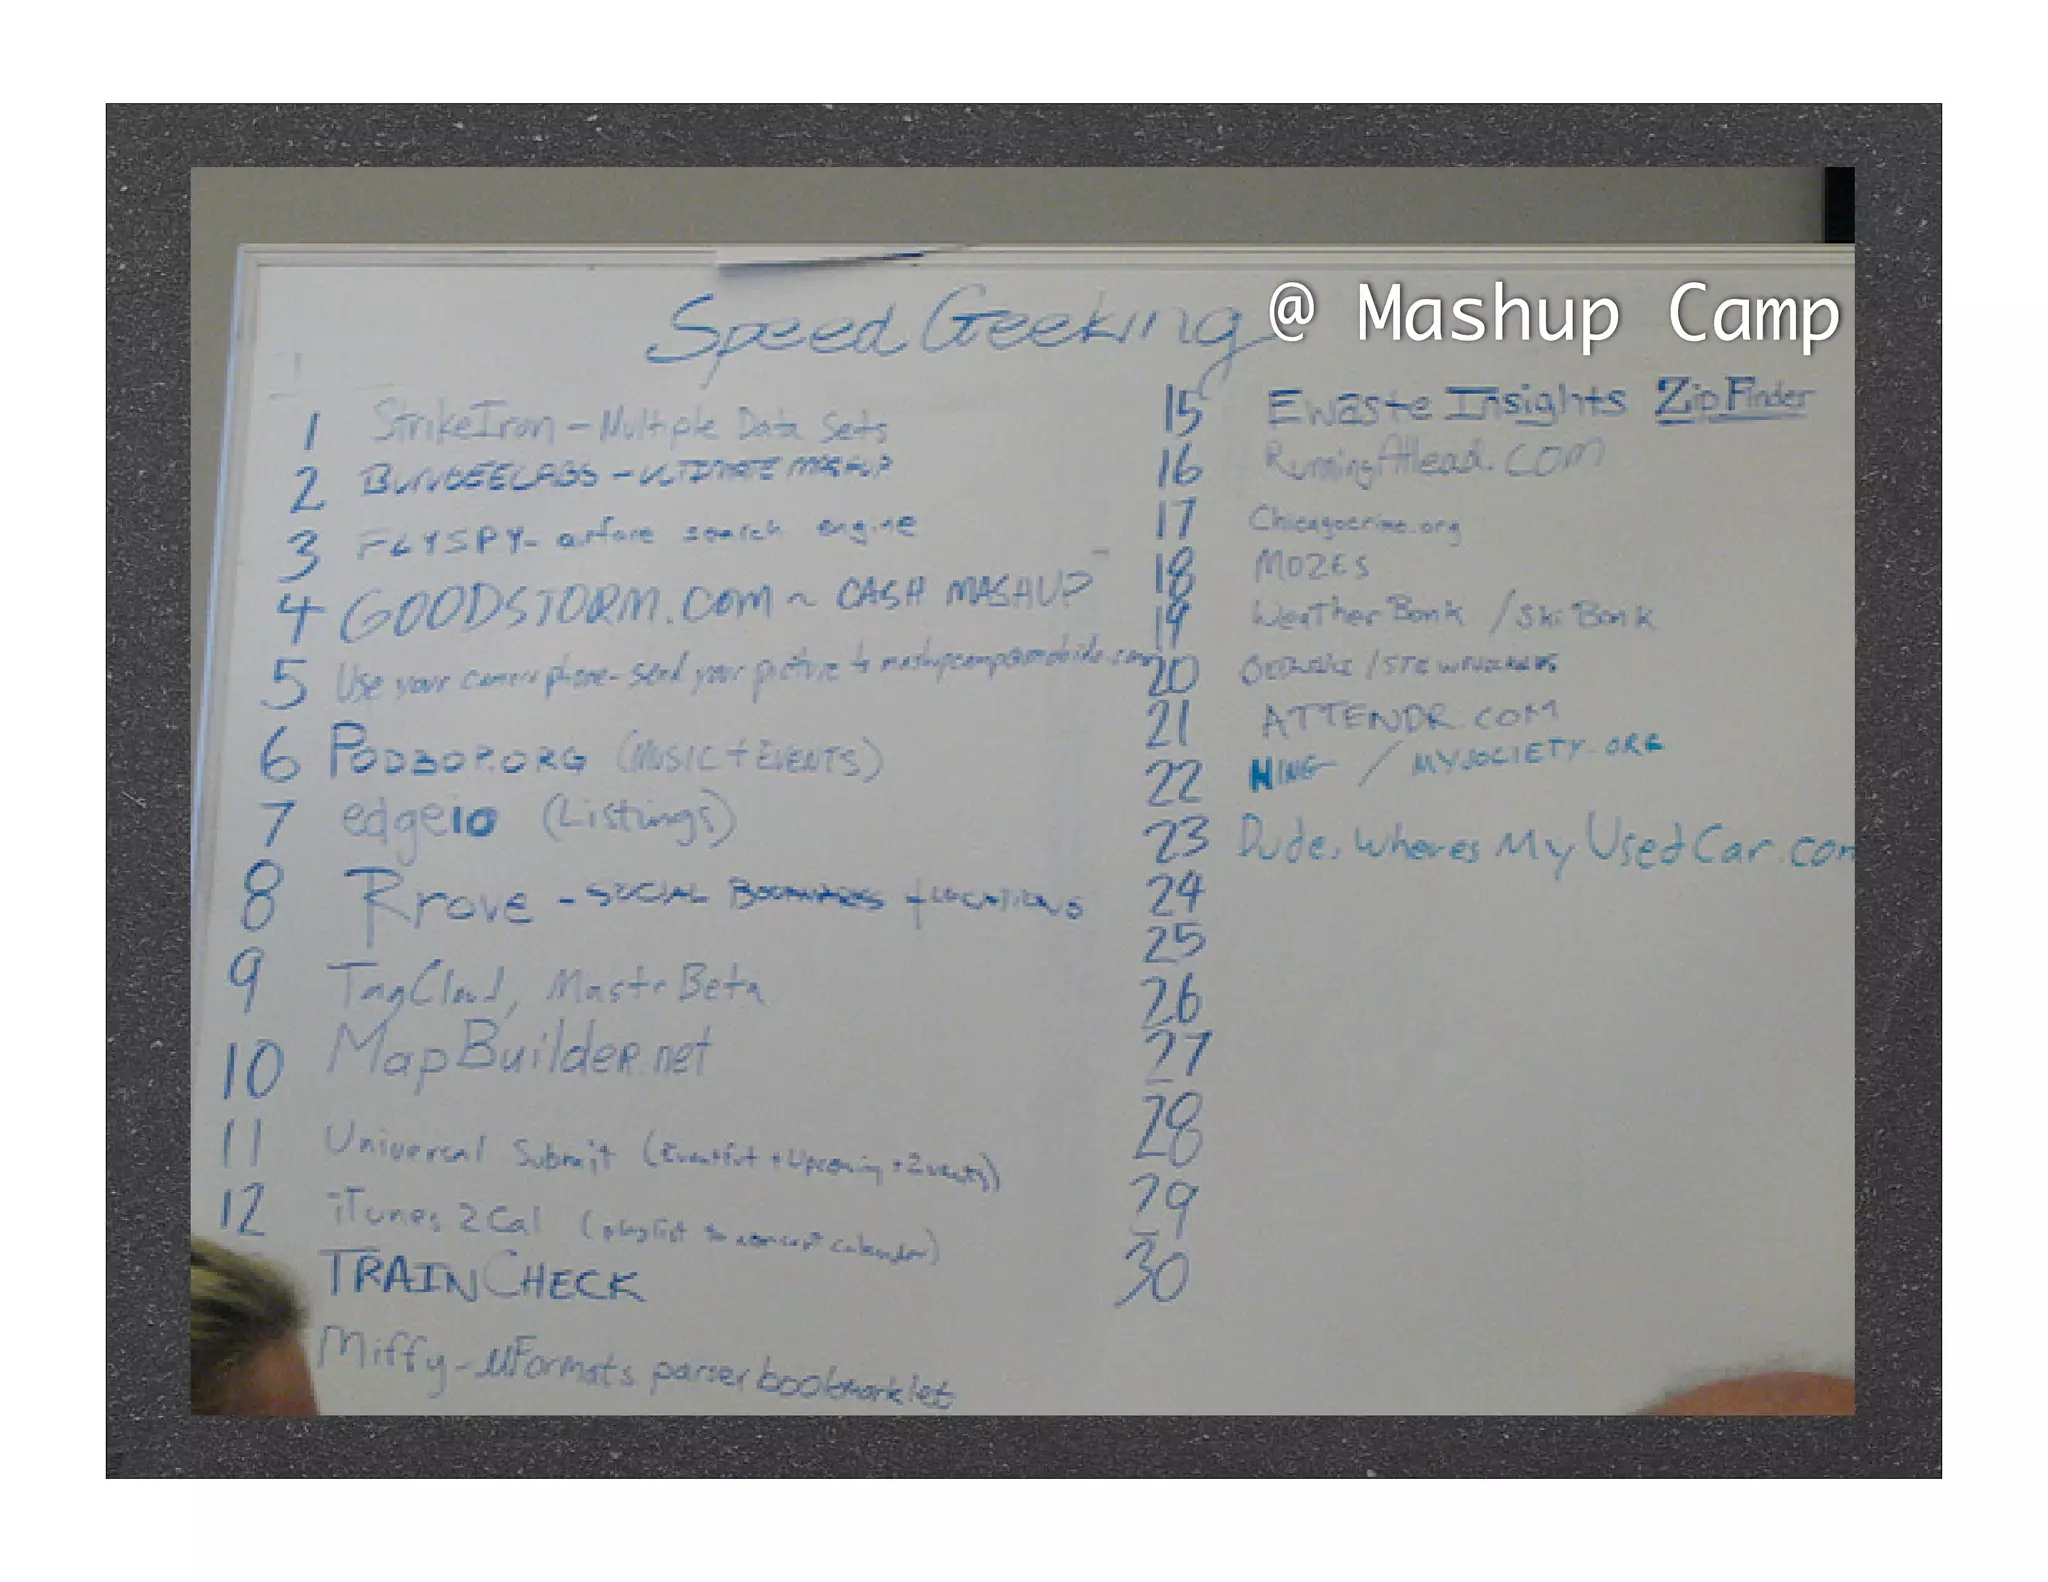 Speed Geeking @ Mashup Camp
1 StrikeIron - Multiple Data Sets
2 BUNGEELABS - ULTIMATE MASHUP
3 FLYSPY - airfare search engine
4 GOODSTORM.COM ~ CASH MASHUP
5 Use your camera phone - send your picture to
6 PODBOP.ORG (MUSIC + EVENTS)
7 edgeio (Listings)
8 Rrove - SOCIAL BOOKMARKS + LOCATIONS
9 TagCloud, MastrBeta
10 MapBuilder.net
11 Universal Submit (Eventful + Upcoming + Zvents)
12 iTunes2Cal (playlist to concert calendar)
TRAINCHECK
Miffy - µFormats parser bookmarklet
15 Ewaste Insights ZipFinder
16 RunningAHead.com
17 Chicagocrime.org
18 MOZES
19 WeatherBonk / SkiBonk
20
21 ATTENDR.COM
22 NING / MYSOCIETY.ORG
23 Dude, Wheres My Used Car.com
24
25
26
27
28
29
30